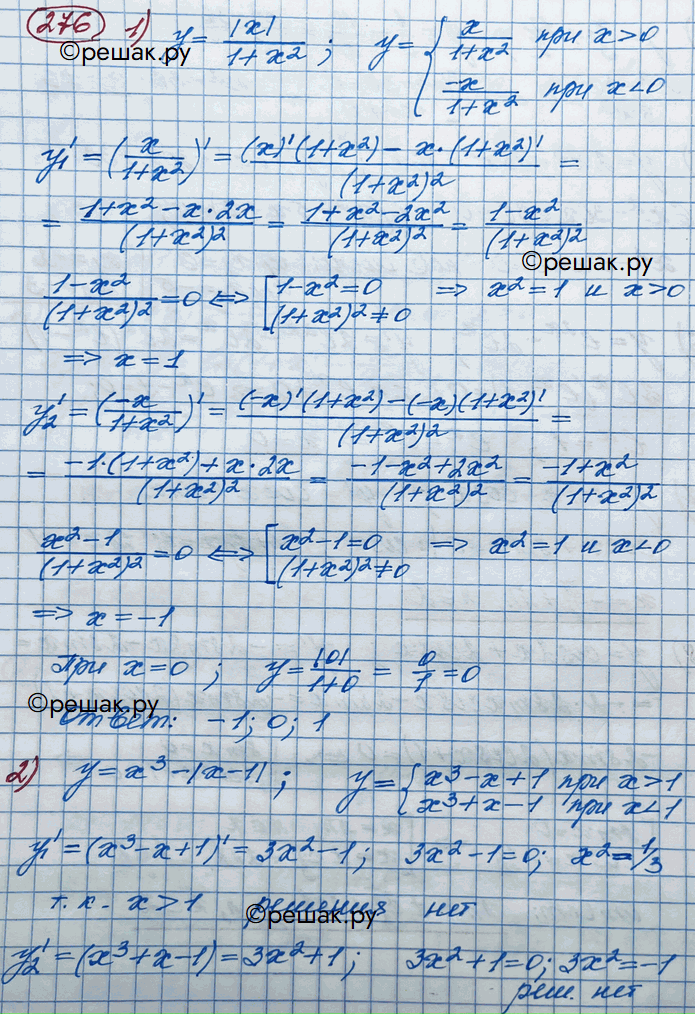 276 1) y = |x| / (1+x²) ; y = { x / (1+x²) при x>0
©решак.ру
-x / (1+x²) при x<0
y₁' = (x / (1+x²))' = ((x)'(1+x²) - x·(1+x²)') / (1+x²)² =
= (1+x²-x·2x) / (1+x²)² = (1+x²-2x²) / (1+x²)² = (1-x²) / (1+x²)²
©решак.ру
(1-x²) / (1+x²)² = 0 <=> [ 1-x²=0 => x²=1 и x>0
(1+x²)²≠0
=> x=1
y₂' = (-x / (1+x²))' = ((-x)'(1+x²) - (-x)(1+x²)') / (1+x²)² =
= (-1·(1+x²)+x·2x) / (1+x²)² = (-1-x²+2x²) / (1+x²)² = (-1+x²) / (1+x²)²
(x²-1) / (1+x²)² = 0 <=> [ x²-1=0 => x²=1 и x<0
(1+x²)²≠0
=> x=-1
При x=0 ; y = |0| / (1+0) = 0/1 = 0
©решак.ру
Ответ: -1; 0; 1
2) y = x³-|x-1| ; y = { x³-x+1 при x>1
x³+x-1 при x<1
y₁' = (x³-x+1)' = 3x²-1; 3x²-1=0; x²=1/3
т.к. x>1 решения нет
©решак.ру
y₂' = (x³+x-1) = 3x²+1; 3x²+1=0; 3x²=-1
реш. нет